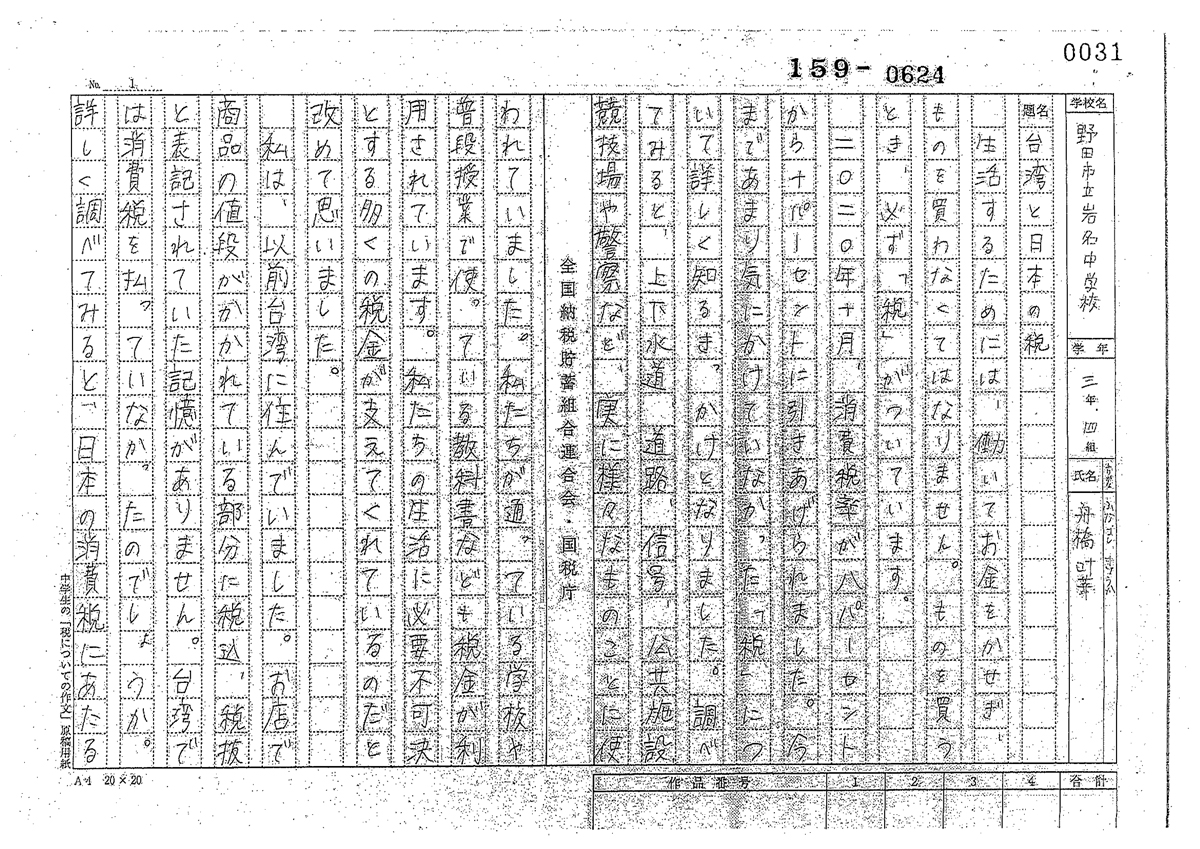 0031
159-0624
No. 1
学校名
野田市立岩名中学校
学年
三年四組
氏名
舟橋
題名
台湾と日本の税
生活するためには、働いてお金をかせぎ、
ものを買わなくてはなりません。ものを買う
とき、必ず「税」がついています。
二〇二〇年十月、消費税率が八パーセント
から十パーセントに引きあげられました。今
まであまり気にかけていなかった「税」につ
いて詳しく知るきっかけとなりました。調べ
てみると、上下水道、道路、信号、公共施設
競技場や警察など、更に様々なものごとに使
全国納税貯蓄組合連合会・国税庁
われていました。私たちが通っている学校や
普段授業で使っている教科書なども税金が利
用されています。私たちの生活に必要不可決
とする多くの税金が支えてくれているのだと
改めて思いました。
私は、以前台湾に住んでいました。お店で
商品の値段がかかれている部分に税込、税抜
と表記されていた記憶がありません。台湾で
は消費税を払っていなかったのでしょうか。
詳しく調べてみると、日本の消費税にあたる
中学生の「税についての作文」原稿用紙
A4 20×20
作品番号
1
2
3
4
合計